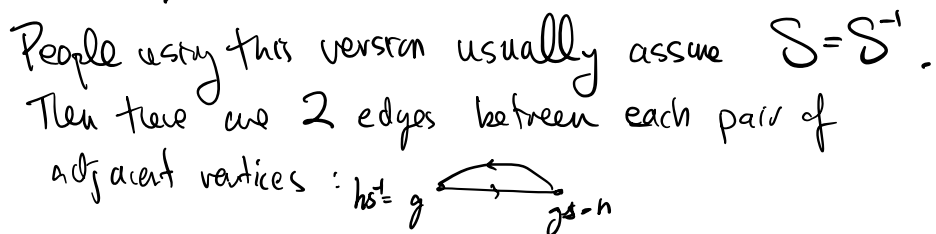 People using this version usually assume S=S⁻¹.
Then there are 2 edges between each pair of
adjacent vertices : hs⁻¹= g gs=h